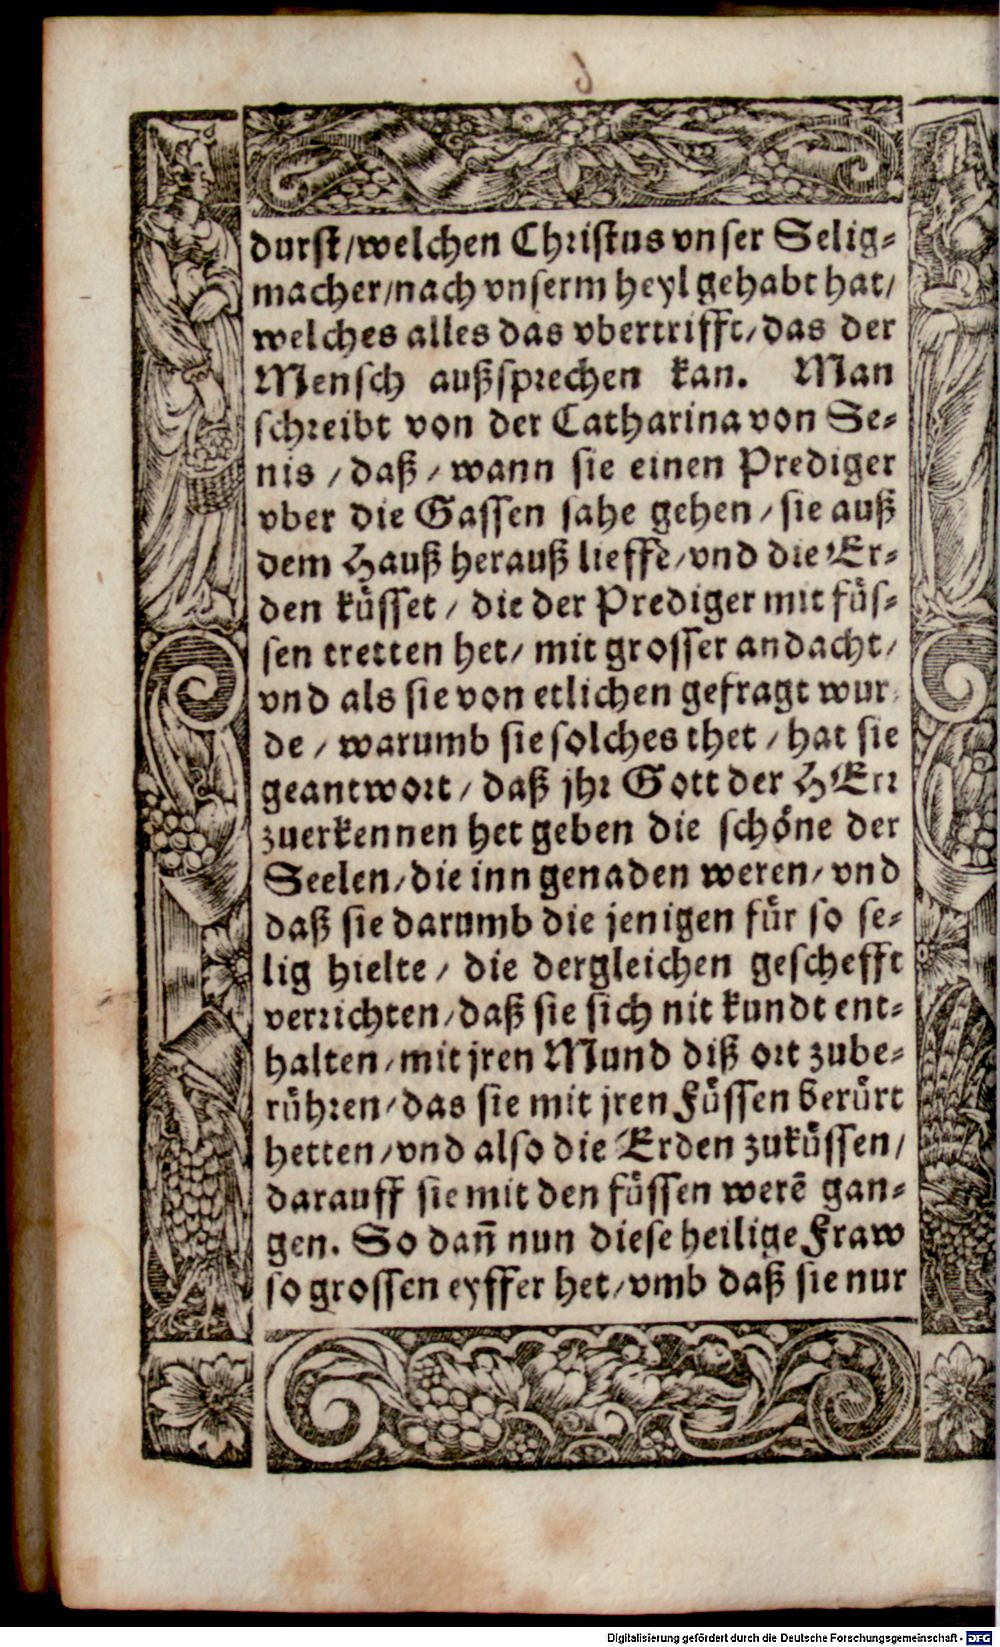 durst/welchen Christus vnser Selig-
macher/nach vnserm heyl gehabt hat/
welches alles das vbertrifft/das der
Mensch außsprechen kan. Man
schreibt von der Catharina von Se-
nis / daß / wann sie einen Prediger
vber die Gassen sahe gehen / sie auß
dem Hauß herauß lieffe/vnd die Er-
den küsset / die der Prediger mit füs-
sen tretten het/ mit grosser andacht/
vnd als sie von etlichen gefragt wur-
de / warumb sie solches thet / hat sie
geantwort/ daß jhr Gott der HErr
zuerkennen het geben die schöne der
Seelen/die inn genaden weren/ vnd
daß sie darumb die jenigen für so se-
lig hielte / die dergleichen geschefft
verrichten/daß sie sich nit kundt ent-
halten/mit jren Mund diß ort zube-
rühren/das sie mit jren Füssen berürt
hetten/vnd also die Erden zuküssen/
darauff sie mit den füssen werē gan-
gen. So dañ nun diese heilige Fraw
so grossen eyffer het/vmb daß sie nur
Digitalisierung gefördert durch die Deutsche Forschungsgemeinschaft - DFG